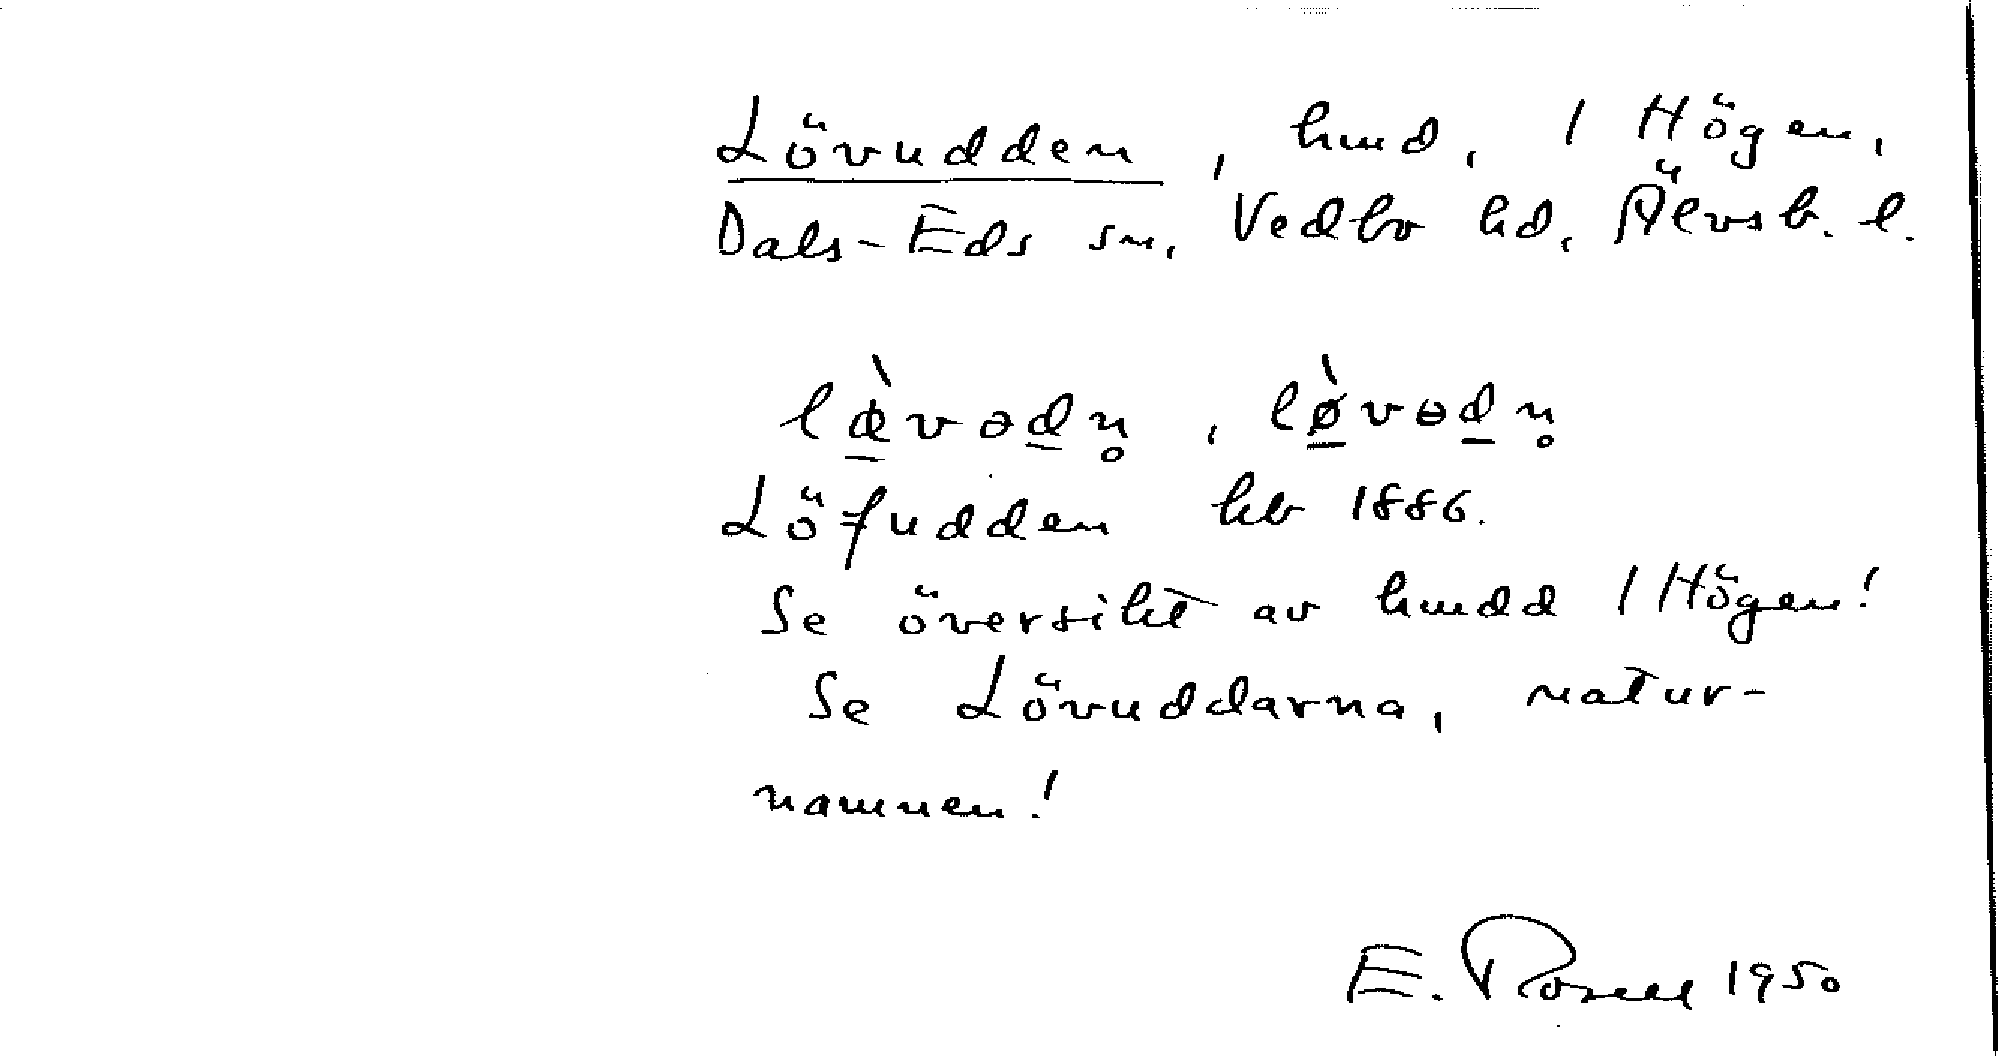 Lövudden, hmd, 1 Högen,
Dals-Eds sn, Vedbo hd, Älvsb. l.
lœ̀vɵdn̥, lø̀vɵdn̥
Löfudden hb 1886.
Se översikt av hmdd 1 Högen!
Se Lövuddarna, natur-
namnen!
E. Rosell 1950